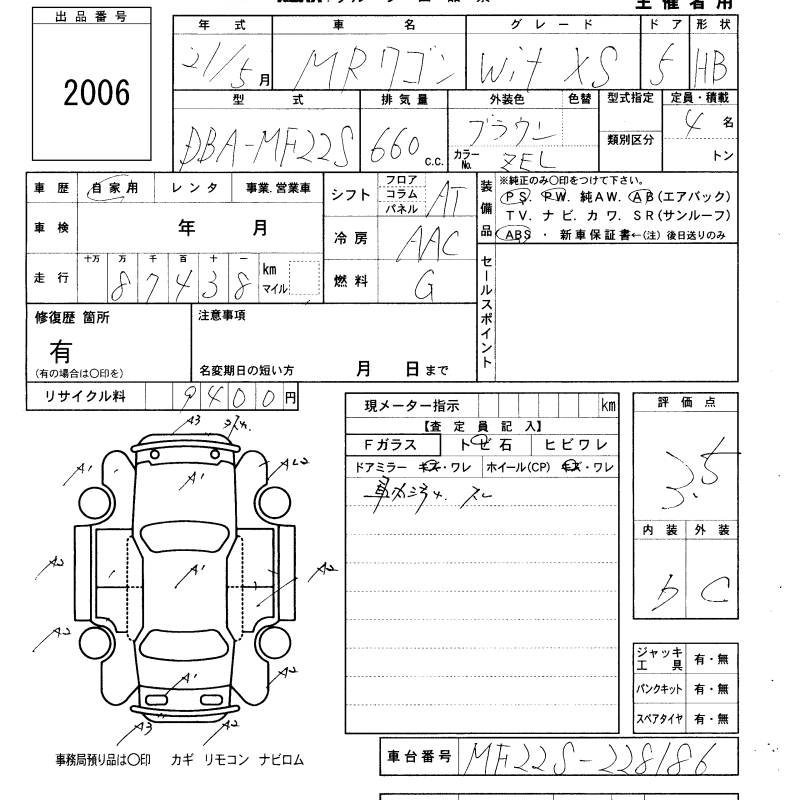 主 催 者 用
出 品 番 号
2006
年 式 車 名 グ レ ー ド ド ア 形 状
21/5 月 MRワゴン Wit XS 5 HB
型 式 排 気 量 外装色 色替 型式指定 定員・積載
DBA-MF22S 660 c.c. ブラウン 類別区分 4 名
カラーNo. ZEL トン
車 歴 自 家 用 レ ン タ 事業.営業車
車 検 年 月
走 行 十万 万 千 百 十 一 km
8 7 4 3 8 マイル
シフト フロア コラム パネル AT
冷 房 AAC
燃 料 G
装備品 ※純正のみ○印をつけて下さい。
PS. PW. 純AW. AB(エアバック)
TV. ナ ビ. カ ワ. SR(サンルーフ)
ABS ・ 新 車 保 証 書 ←(注) 後日送りのみ
セールスポイント
修復歴 箇所
有
(有の場合は○印を)
注意事項
名変期日の短い方 月 日 まで
リ サ イ ク ル 料 9 4 0 0 円
現メーター指示 km
【査 定 員 記 入】
Fガラス ト ビ 石 ヒ ビ ワ レ
ドアミラー キズ・ワレ ホイール(CP) キズ・ワレ
車内汚れ. スレ
評 価 点
3.5
内 装 外 装
b C
A3
A1 A1 A2
A2 A1 A2
A2 A1 A2
A3 A2
ジャッキ 工 具 有・無
パンクキット 有・無
スペアタイヤ 有・無
事務局預り品は○印 カギ リモコン ナビロム
車台番号 MF22S-228186